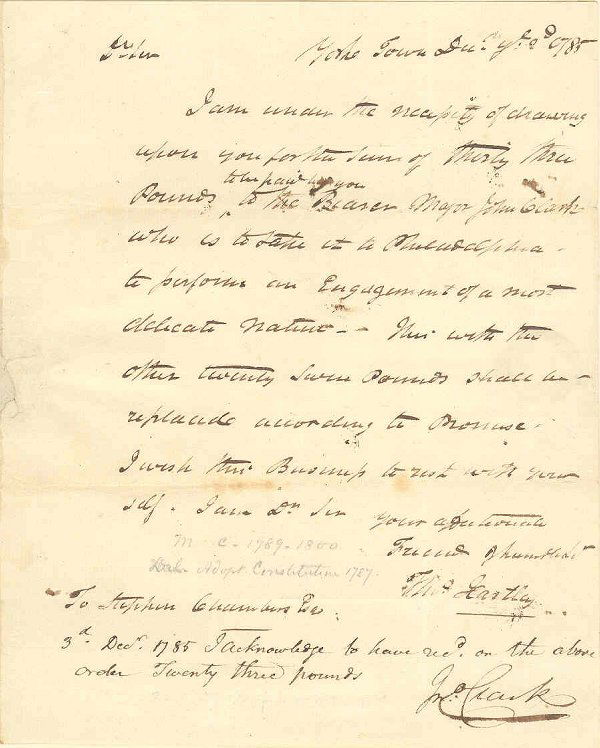 Dr Sir York Town Decr. ye. 2d 1785
I am under the necessity of drawing
upon you for the Sum of Thirty three
to be paid by you
Pounds ^ to the Bearer Major John Clark
who is to take it to Philadelphia
to perform an Engagement of a most
delicate nature - - This with the
other twenty Seven Pounds shall be
replacide according to Promise.
I wish this Business to rest with your
self. I am Dr Sir your affectionate
M C - 1789-1800
Friend & humble
Adopt Constitution 1787.
Thos Hartley
To Stephen Chambers Esq
3d. Decr. 1785 I acknowledge to have recd. on the above
order Twenty three pounds
Jno. Clark